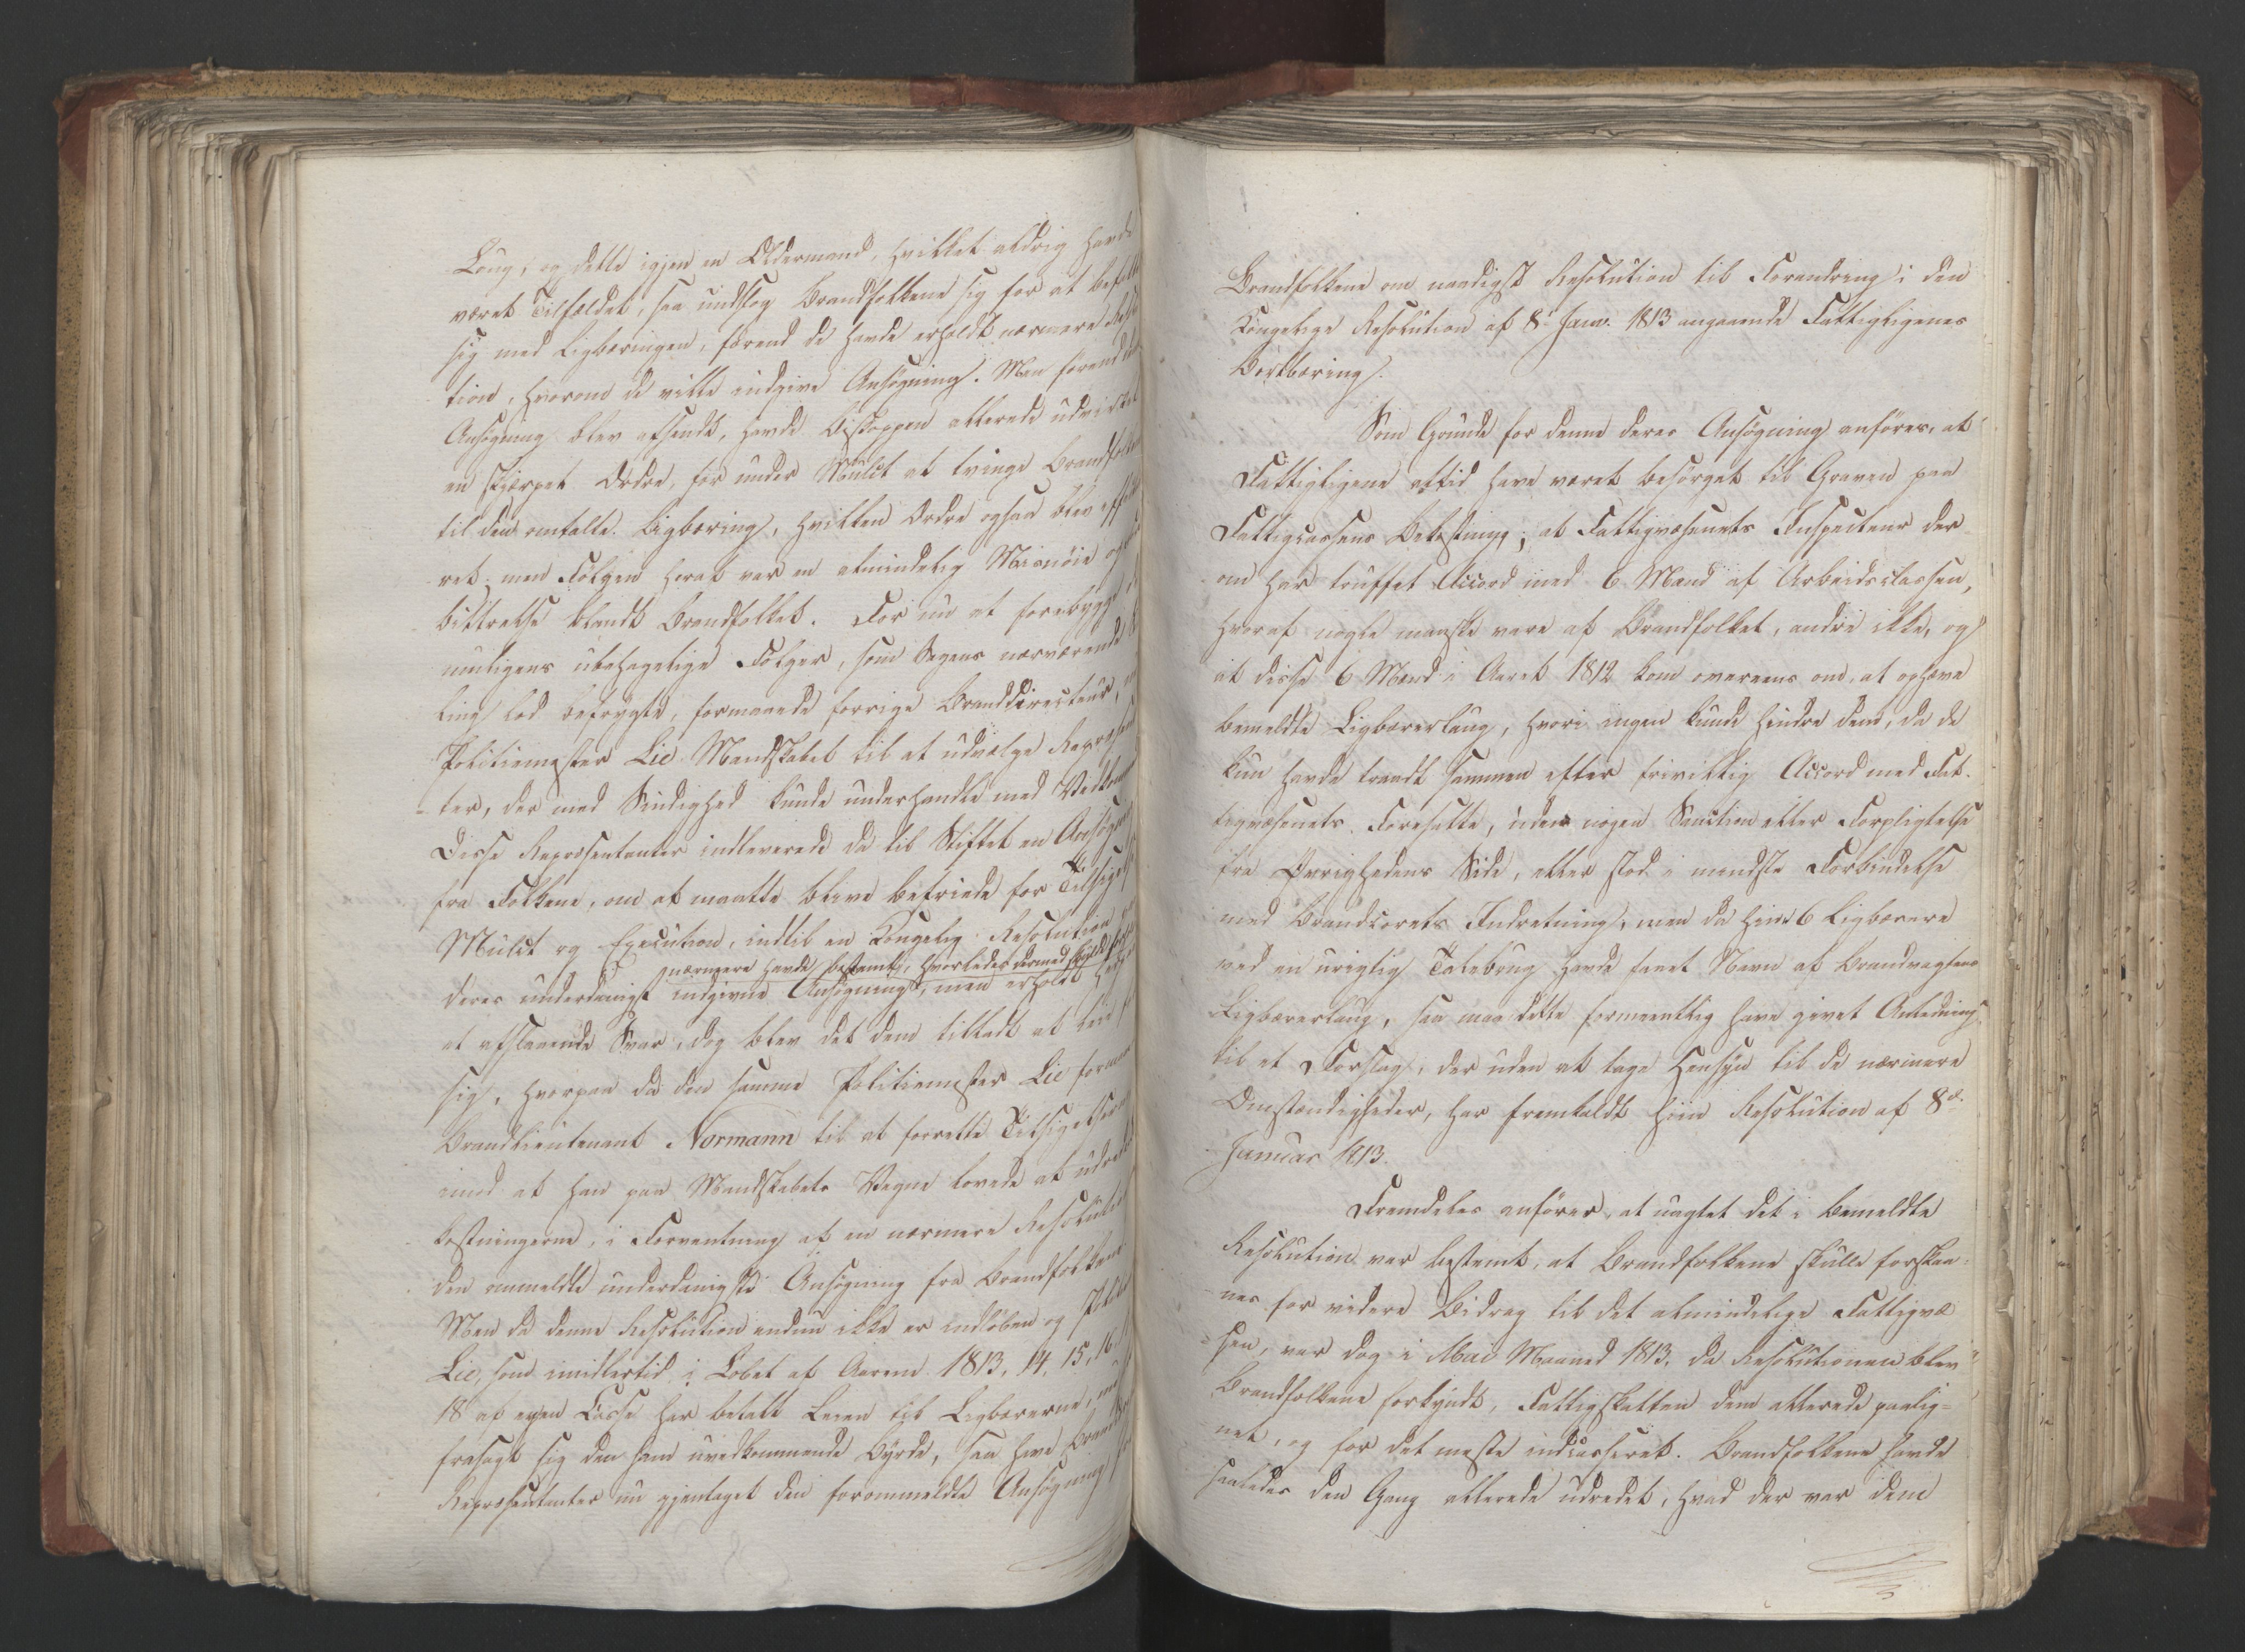 Laug, og dette igjen en Oldermand, hvilket aldrig havde
været Tilfældet, saa undslog Brandfolkene sig for at befatte
sig med Ligbæringen, førend de havde erholdt nærmere
tion, hvorom de vilde indgive Ansøgning. Men førend
Ansøgning blev afsendt, havde Biskoppen allerede udvirket
en skjærpet Ordre, for under Mulct at tvinge Brandfolkene
til den omtalte Ligbæring, hvilken Ordre ogsaa blev
ret; men Følgen heraf var en almindelig Misnøie og
bittrelse blandt Brandfolket. For nu at forebygge
muligens ubehagelige Følger, som Sagens nærværende
ling lod befrygte, formaaede forrige Branddirecteur,
Politiemester Lie Mandskabet til at udvælge Repræsen
ter, der med Sindighed kunde underhandle med
Disse Repræsentanter indleverede da til Stiftet en Ansøgning
fra Folkene, om at maatte blive befriede for Tilsigelse
Mulct og Execution, indtil en Kongelig Resolution
nærmere havde bestemt, hvorledes dermed skulde
deres underdanigst indgivne Ansøgning, men erholdt
et afslaaende Svar, dog blev det dem tilladt at
sig, hvorpaa da den samme Politiemester Lie
Brandlieutenant Normann til at forrette Tilsigelserne
imod at han paa Mandskabets Vegne lovede at udrede
kostningerne, i Forventning af en nærmere Resolution
den anmeldte underdanigste Ansøgning fra Brandfolkene
Men da denne Resolution endnu ikke er indløben og
Lie, som imidlertid i Løbet af Aarene 1813, 14, 15, 16
18 af egen Casse har betalt Leien til Ligbærerne,
frasagt sig den ham uvedkommende Byrde, saa have
Repræsentanter nu gjentaget den forommeldte Ansøgning
Brandfolkene om naadigst Resolution til Forandring i den
Kongelige Resolution af 8de Janv. 1813 angaaende Fattigligenes
Bortbæring.
Som Grunde for denne deres Ansøgning anføres, at
Fattigligene altid have været besørget til Graven paa
Fattigcassens Bekostning; at Fattigvæsenets Inspecteur der
om har truffet Accord med 6 Mand af Arbeidsclassen,
hvoraf nogle maaske vare af Brandfolket, andre ikke, og
at disse 6 Mand i Aaret 1812 kom overeens om, at ophæve
bemeldte Ligbærerlaug, hvori ingen kunde hindre dem, da de
kun havde traadt sammen efter frivillig Accord med Fat¬
tigvæsenets Foresatte, uden nogen Sanction eller Forpligtelse
fra Øvrighedens Side, eller stod i mindste Forbindelse
med Brandcorets Indretning, men da hine 6 Ligbærere
ved en urigtig Talebrug havde faaet Navn af Brandvagtens
Ligbærerlaug, saa maa dette formeentlig have givet Anledning
til et Forslag, der uden at tage Hensyn til de nærmere
Omstændigheder, har fremkaldt hiin Resolution af 8de
Januar 1813.
Fremdeles anføres, at uagtet det i bemeldte
Resolution var bestemt, at Brandfolkene skulle forskaa¬
nes for videre Bidrag til det almindelige Fattigvæ
sen, var dog i Mai Maaned 1813, da Resolutionen blev
Brandfolkene forkyndt, Fattigskatten dem allerede paalig=
net, og for det meste indcasseret. Brandfolkene havde
saaledes den Gang allerede udredet, hvad der var dem